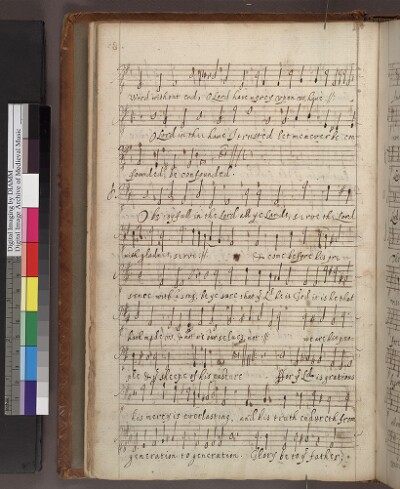 Digital Imaging by DIAMM
Digital Image Archive of Medieval Music
world without end, O Lord have mercy upon me
O Lord in thee have I trusted let me never be con
founded, be confounded.
O be joyfull in the Lord all ye Lands, serve the Lord
with gladnes, serve come before his pre
sence with a song, be ye sure that ye Ld he is God, it is he that
hath made us, not we our selves, not we are his peo
ple & ye sheepe of his pasture ffor ye Ld is gratious
his mercy is everlasting, and his truth endureth from
generation to generation. Glory be to ye father,